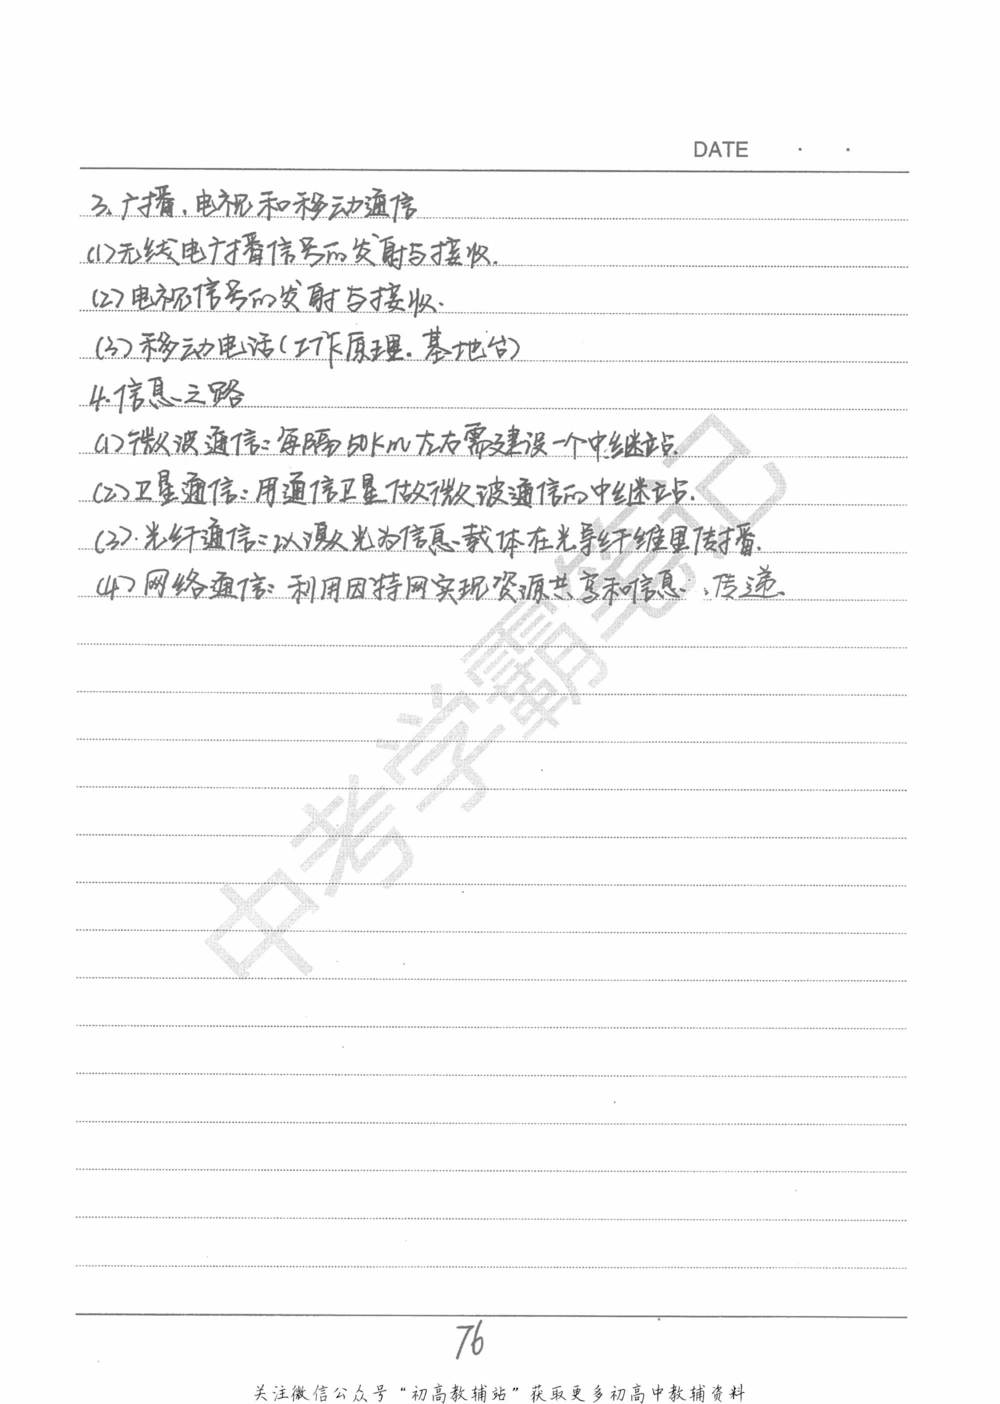 DATE · ·
3、广播、电视和移动通信
(1)无线电广播信号的发射与接收.
(2)电视信号的发射与接收.
(3)移动电话(工作原理.基地台)
4.信息之路
(1)微波通信:每隔50km左右需建设一个中继站.
(2)卫星通信:用通信卫星做微波通信的中继站.
(3).光纤通信:以激光为信息载体在光导纤维里传播.
(4)网络通信:利用因特网实现资源共享和信息、传递.
中考学霸笔记
76
关注微信公众号“初高教辅站”获取更多初高中教辅资料